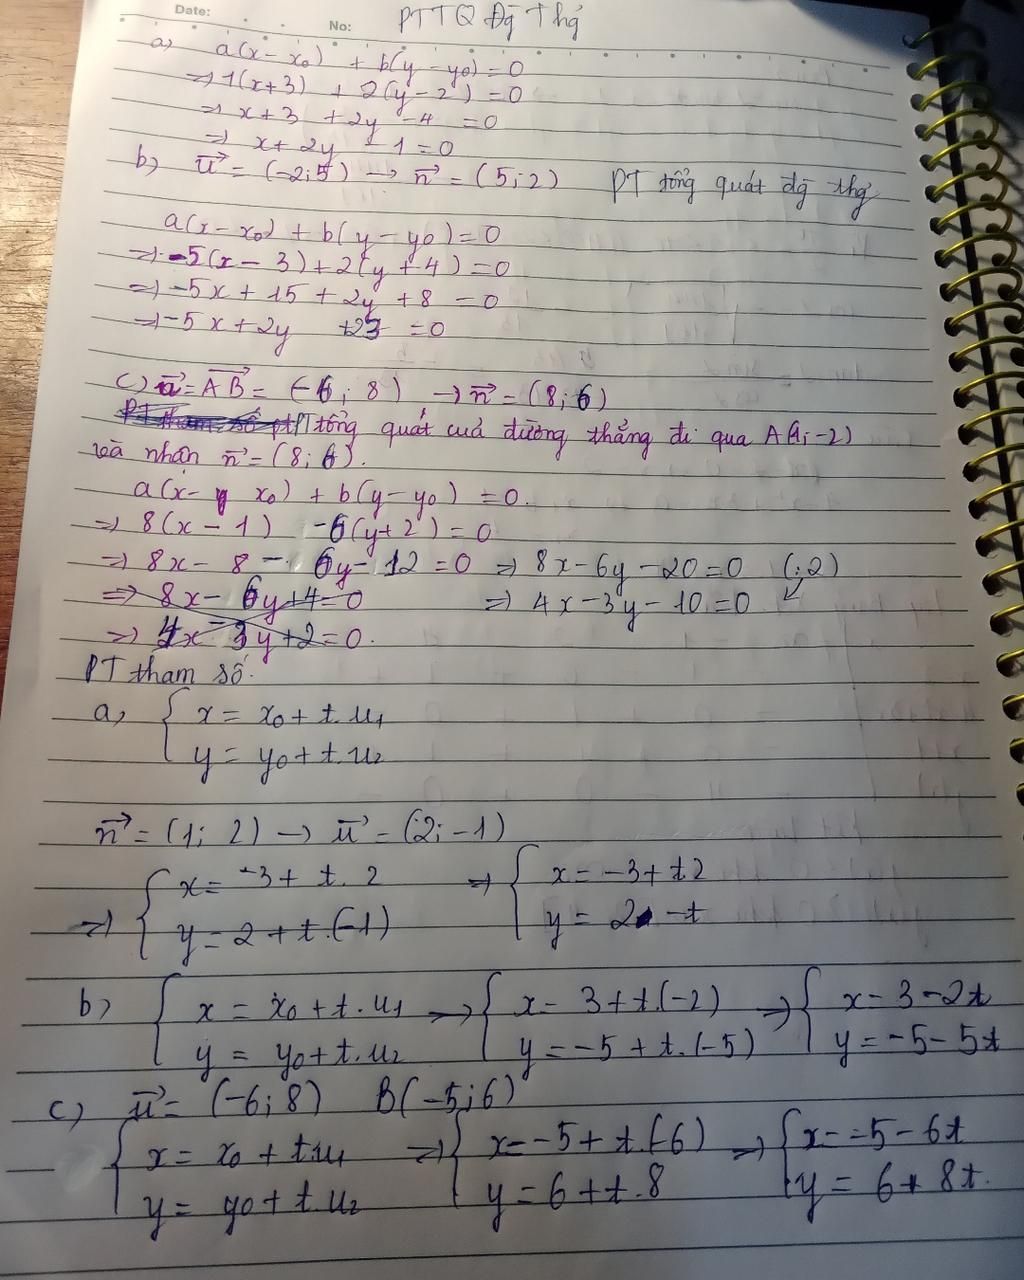 Date:
No:
PTTQ Đg Thg
a) a(x - x₀) + b(y - y₀) = 0
=> 1(x+3) + 2(y-2) = 0
=> x+3 + 2y - 4 = 0
=> x + 2y - 1 = 0
b) u⃗ = (-2; 5) -> n⃗ = (5; 2) PT tổng quát đg thg
a(x - x₀) + b(y - y₀) = 0
=> -5(x - 3) + 2(y + 4) = 0
=> -5x + 15 + 2y + 8 = 0
=> -5x + 2y +23 = 0
c) u⃗ = AB⃗ = (-6; 8) -> n⃗ = (8; 6)
PT tổng quát cuả đường thẳng đi qua A(1; -2)
và nhận n⃗ = (8; 6).
a(x - x₀) + b(y - y₀) = 0.
=> 8(x - 1) -6(y+2) = 0
=> 8x - 8 - 6y - 12 = 0 => 8x - 6y - 20 = 0 (:2)
=> 8x - 6y + 4 = 0 => 4x - 3y - 10 = 0
=> 4x - 3y + 2 = 0.
PT tham số.
a, { x = x₀ + t. u₁
y = y₀ + t. u₂
n⃗ = (1; 2) -> u⃗ = (2; -1)
=> { x = -3 + t. 2 => { x = -3 + t2
y = 2 + t.(-1) y = 2 - t
b) { x = x₀ + t. u₁ => { x = 3 + t.(-2) => { x = 3 - 2t
y = y₀ + t. u₂ y = -5 + t.(-5) y = -5 - 5t
c) u⃗ = (-6; 8) B(-5; 6)
{ x = x₀ + t.u₁ => { x = -5 + t.(-6) => { x = -5 - 6t
y = y₀ + t. u₂ y = 6 + t. 8 y = 6 + 8t.